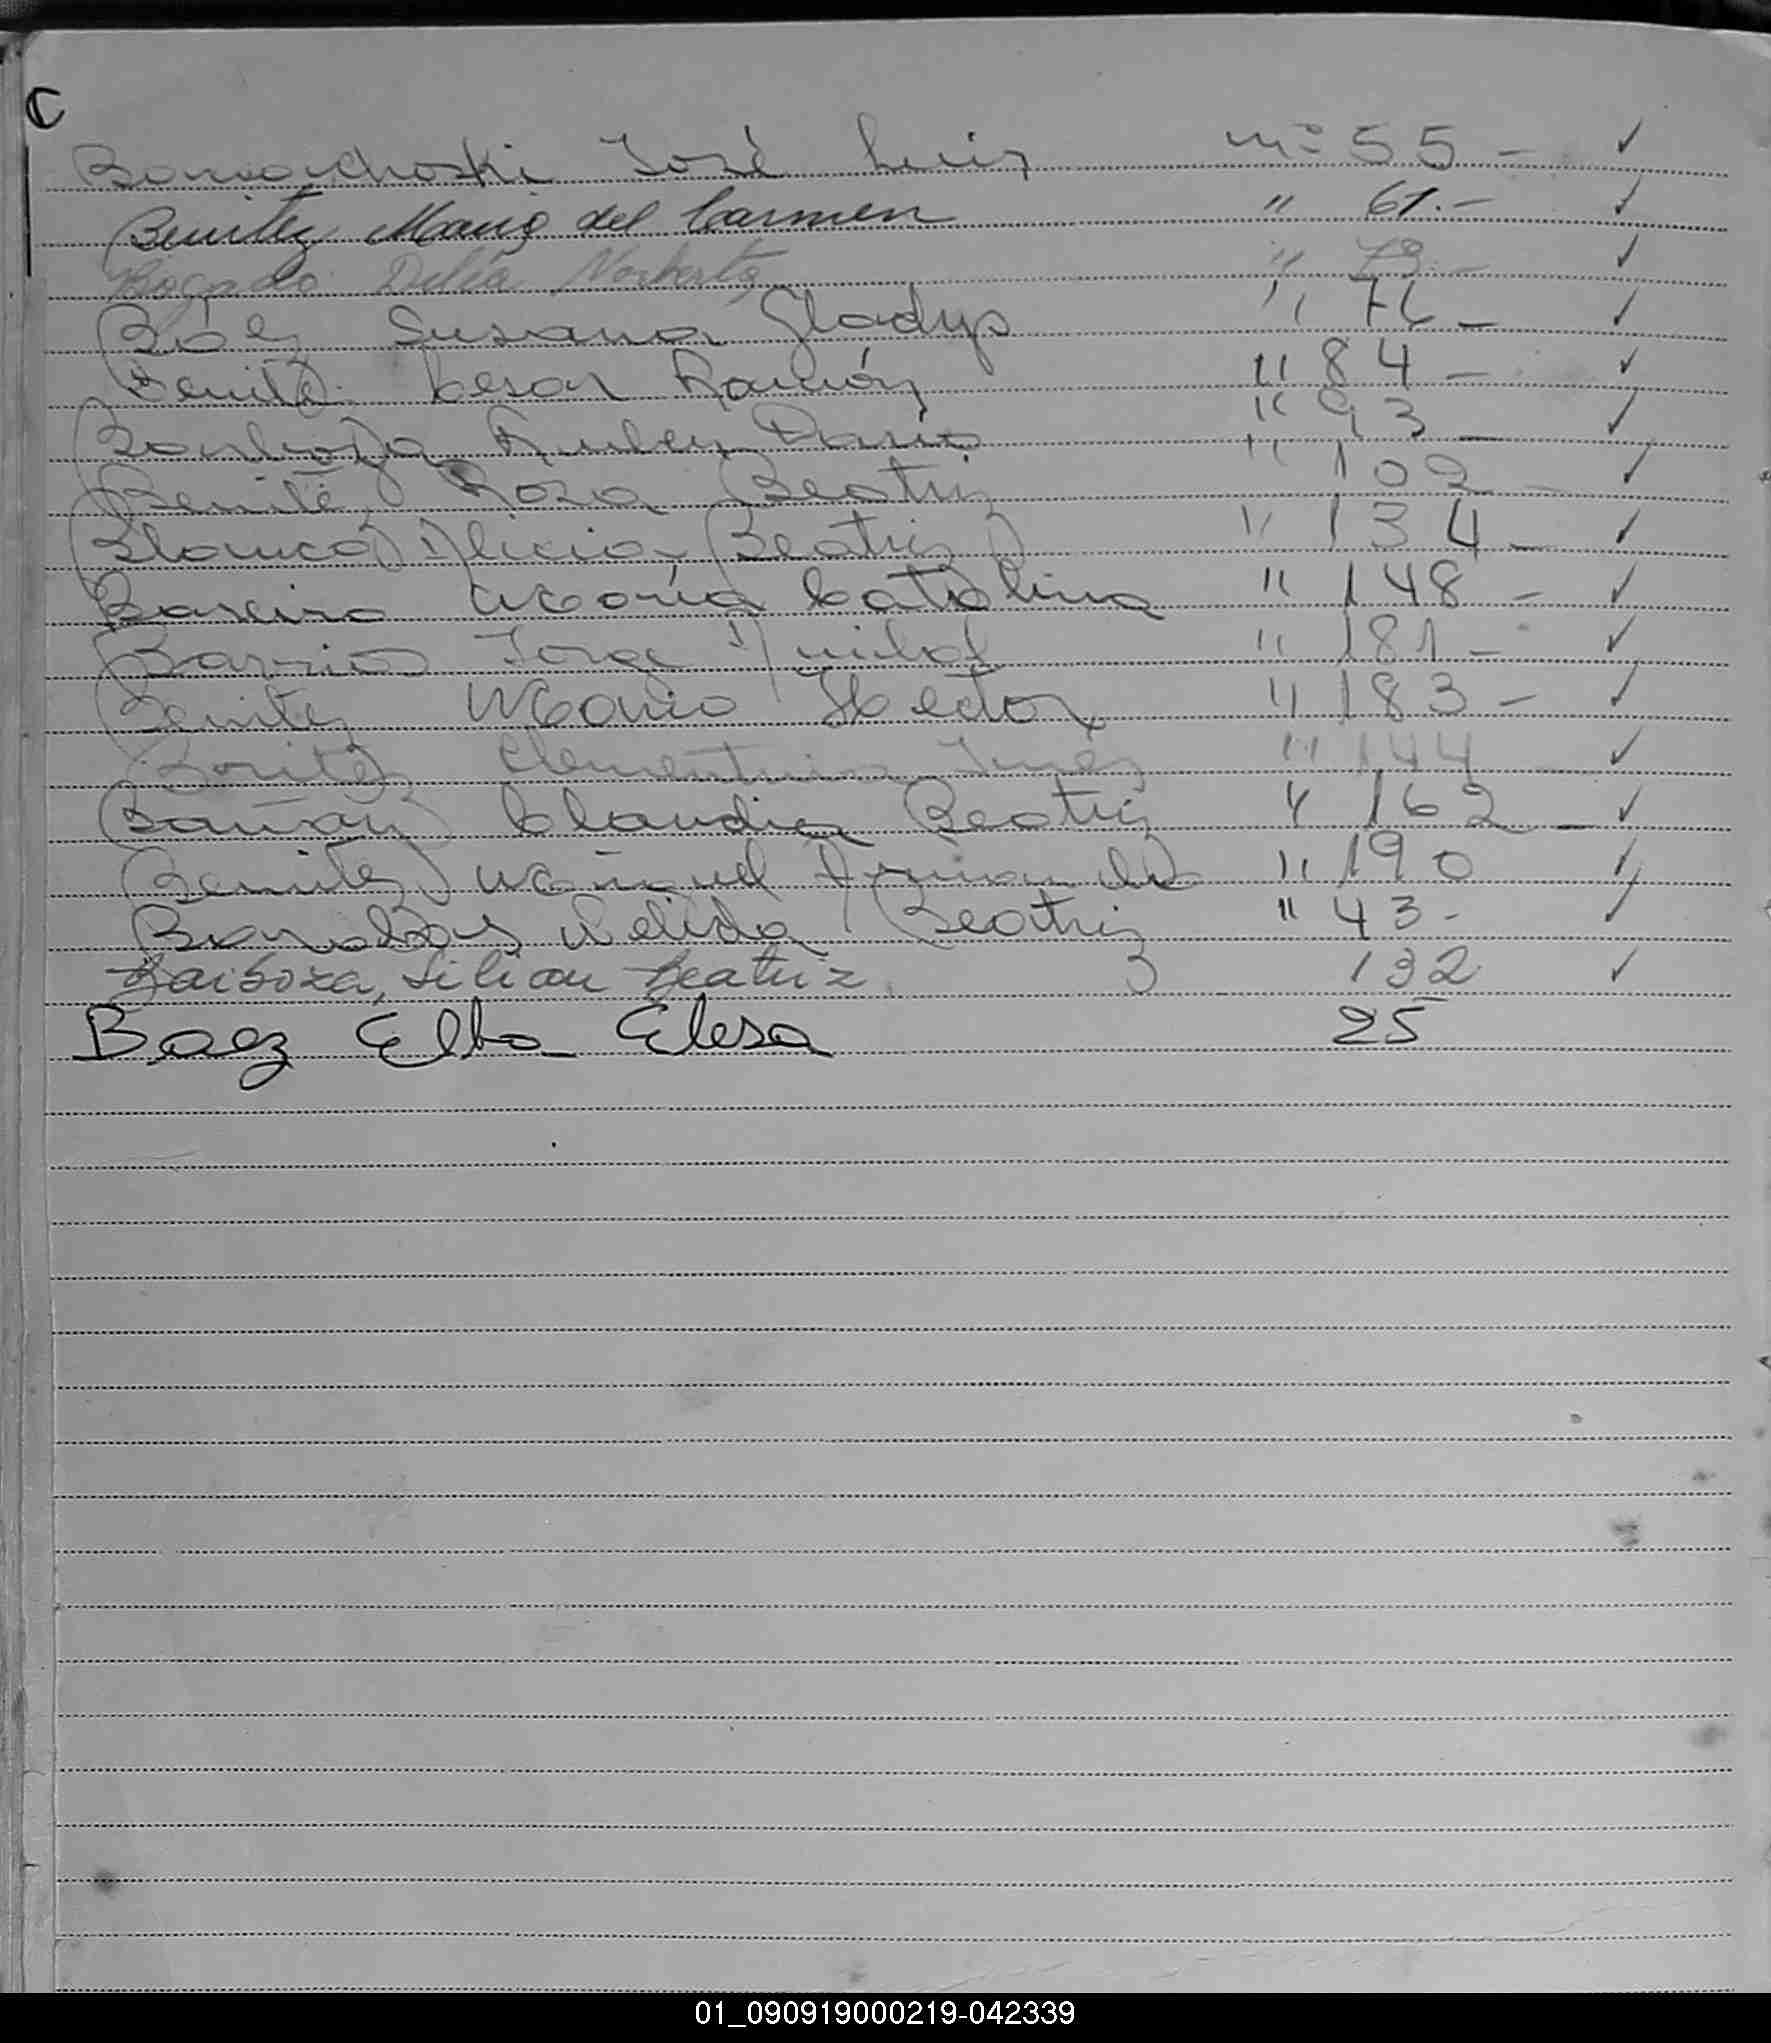 C
José Luis nº 55 - ✓
Benitez Maria del Carmen " 61.- ✓
Bogado Delia Norberta " 73.- ✓
Báez Susana Gladys " 76 - ✓
Benitez Cesar Ramón " 84 - ✓
Barboza Ruben Dario " 93 - ✓
Benitez Rosa Beatriz " 102 - ✓
Blanco Alicia Beatriz " 134 - ✓
Bareiro María Catalina " 148 - ✓
Barrios Jorge Anibal " 181 - ✓
Benitez Mario Hector " 183 - ✓
Benitez Clementina Inés " 144 - ✓
Claudia Beatriz " 162 - ✓
Benitez Miguel Armando " 190 ✓
Nelida Beatriz " 43 - ✓
Barboza, Lilian Beatriz 3 132 ✓
Baez Elba Elesa 25
01_090919000219-042339